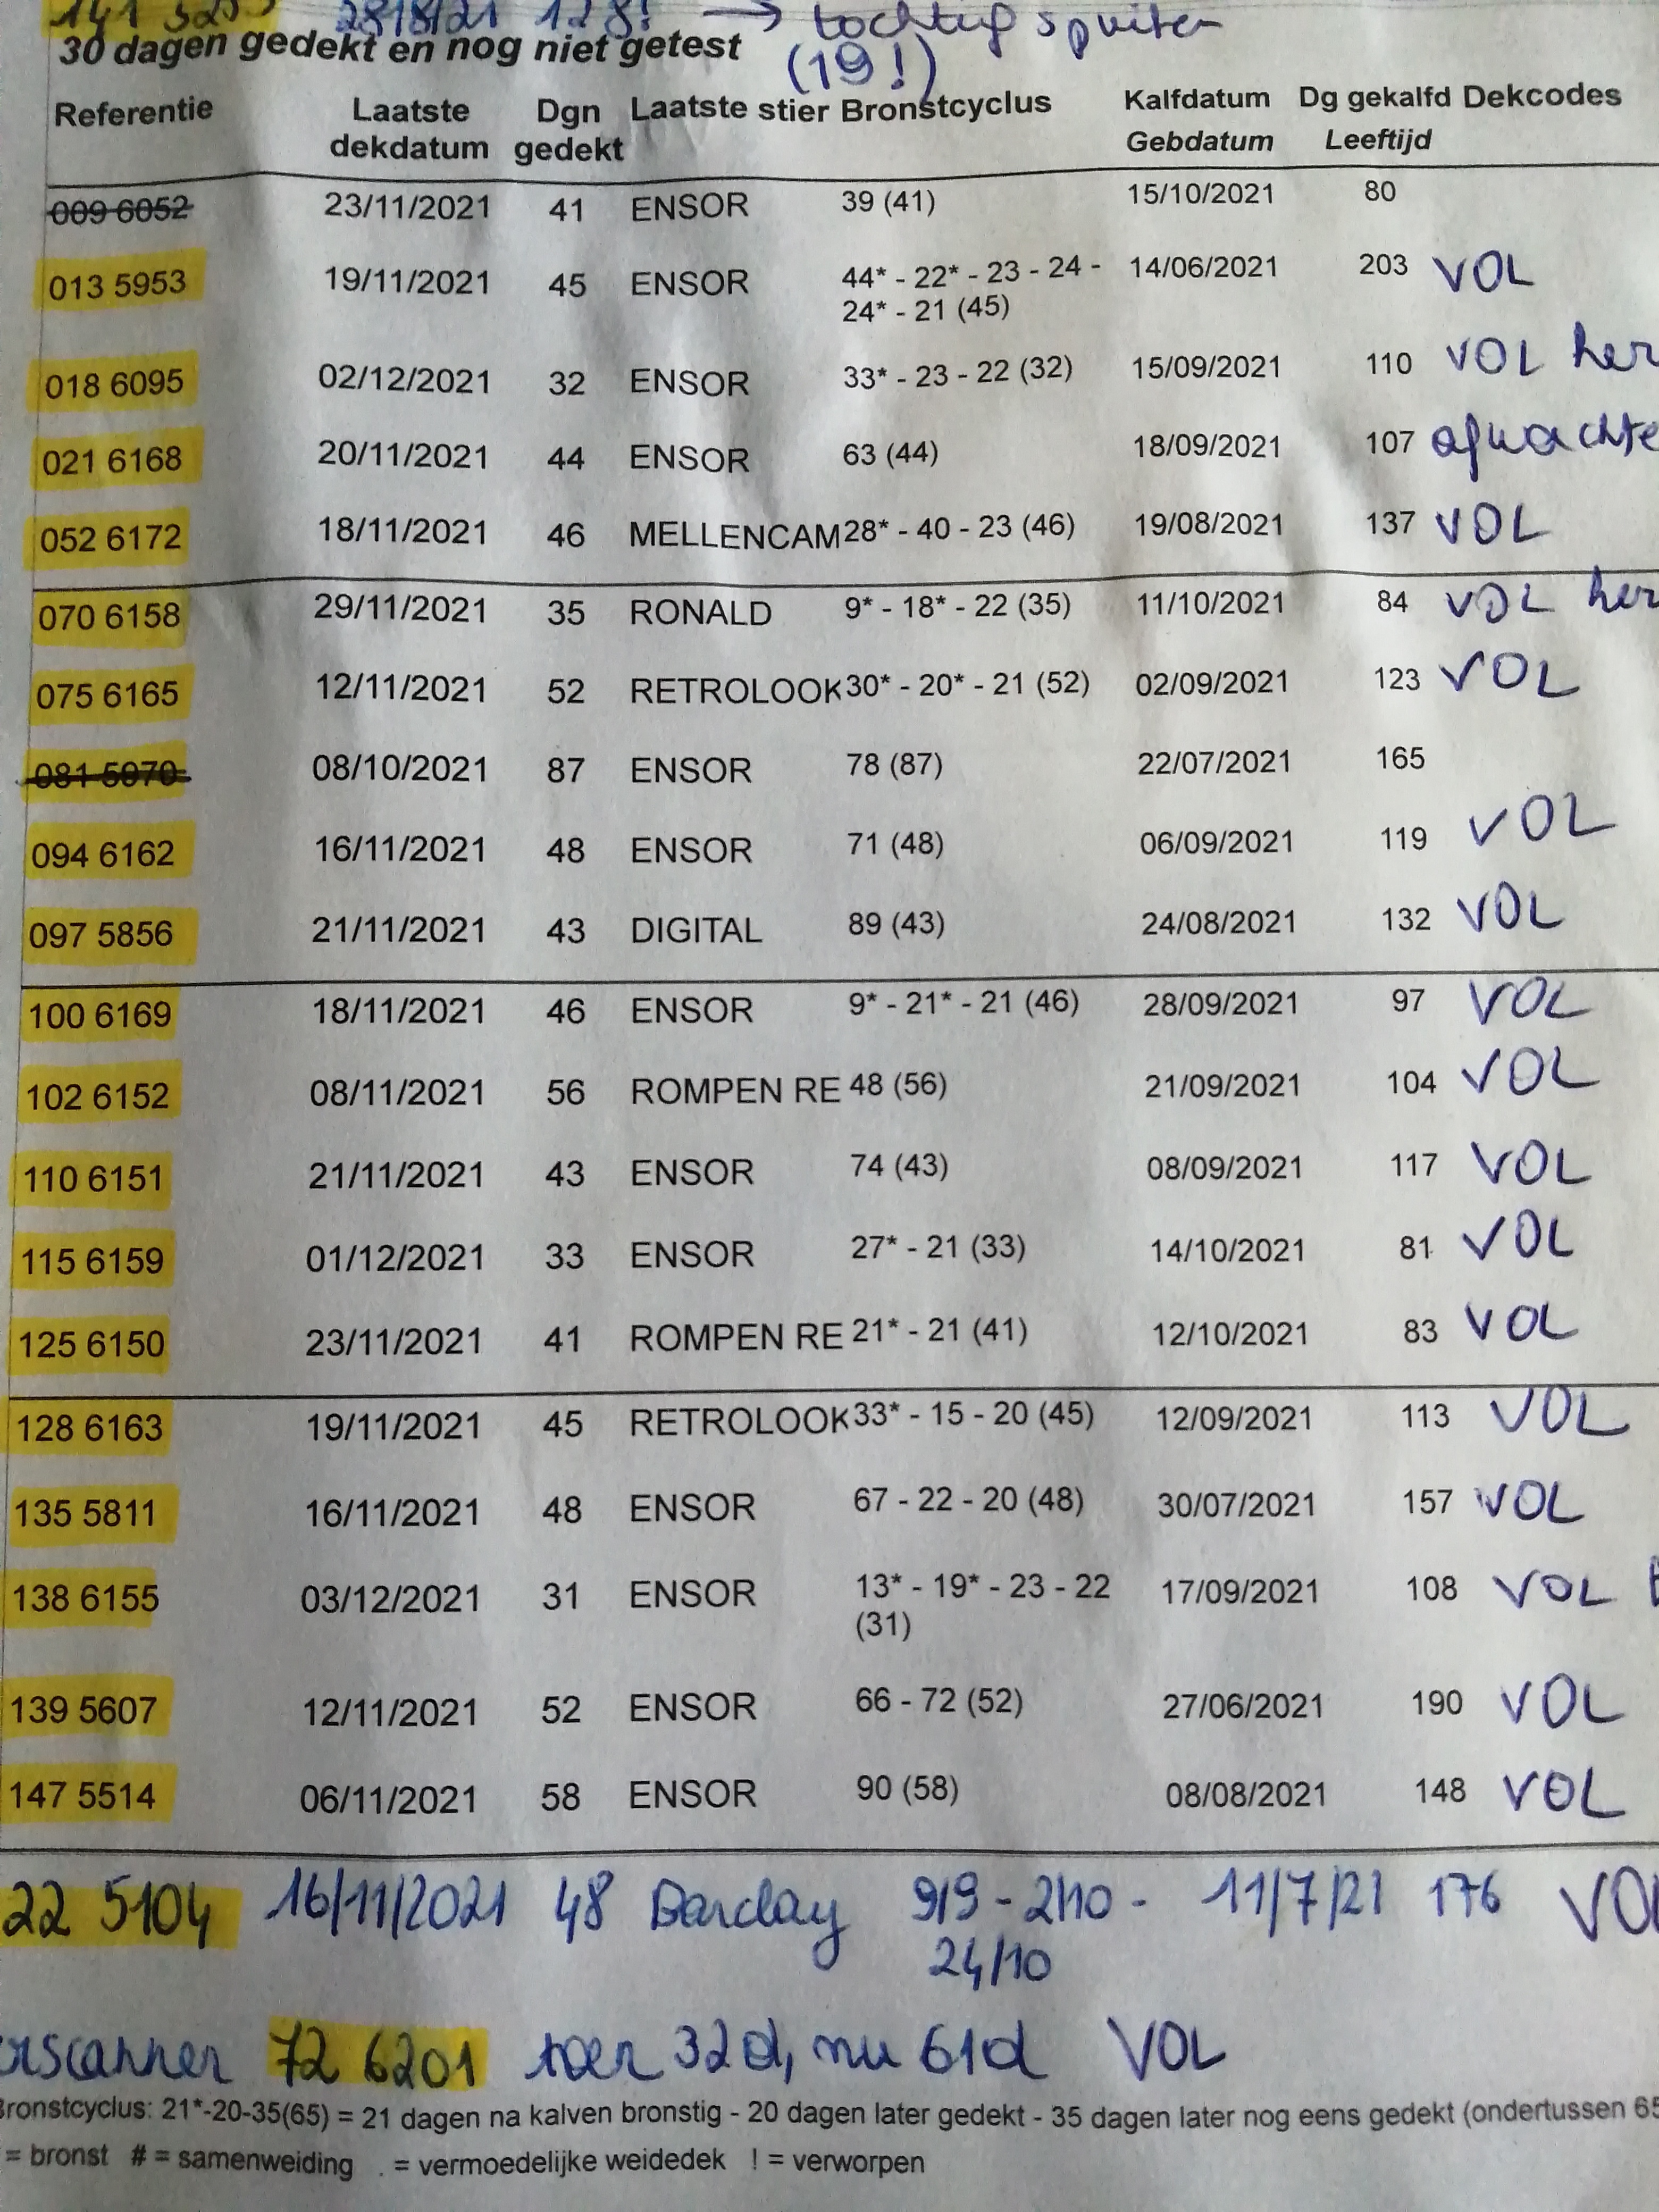 141 28/8/21 128! → tochtig spuiten
30 dagen gedekt en nog niet getest (19!)
Referentie Laatste dekdatum Dgn gedekt Laatste stier Bronstcyclus Kalfdatum Gebdatum Dg gekalfd Leeftijd Dekcodes
009 6052 23/11/2021 41 ENSOR 39 (41) 15/10/2021 80
013 5953 19/11/2021 45 ENSOR 44* - 22* - 23 - 24 - 14/06/2021 203 VOL
24* - 21 (45)
018 6095 02/12/2021 32 ENSOR 33* - 23 - 22 (32) 15/09/2021 110 VOL her
021 6168 20/11/2021 44 ENSOR 63 (44) 18/09/2021 107 afwachte
052 6172 18/11/2021 46 MELLENCAM 28* - 40 - 23 (46) 19/08/2021 137 VOL
070 6158 29/11/2021 35 RONALD 9* - 18* - 22 (35) 11/10/2021 84 VOL her
075 6165 12/11/2021 52 RETROLOOK 30* - 20* - 21 (52) 02/09/2021 123 VOL
081 5970 08/10/2021 87 ENSOR 78 (87) 22/07/2021 165
094 6162 16/11/2021 48 ENSOR 71 (48) 06/09/2021 119 VOL
097 5856 21/11/2021 43 DIGITAL 89 (43) 24/08/2021 132 VOL
100 6169 18/11/2021 46 ENSOR 9* - 21* - 21 (46) 28/09/2021 97 VOL
102 6152 08/11/2021 56 ROMPEN RE 48 (56) 21/09/2021 104 VOL
110 6151 21/11/2021 43 ENSOR 74 (43) 08/09/2021 117 VOL
115 6159 01/12/2021 33 ENSOR 27* - 21 (33) 14/10/2021 81 VOL
125 6150 23/11/2021 41 ROMPEN RE 21* - 21 (41) 12/10/2021 83 VOL
128 6163 19/11/2021 45 RETROLOOK 33* - 15 - 20 (45) 12/09/2021 113 VOL
135 5811 16/11/2021 48 ENSOR 67 - 22 - 20 (48) 30/07/2021 157 VOL
138 6155 03/12/2021 31 ENSOR 13* - 19* - 23 - 22 17/09/2021 108 VOL
(31)
139 5607 12/11/2021 52 ENSOR 66 - 72 (52) 27/06/2021 190 VOL
147 5514 06/11/2021 58 ENSOR 90 (58) 08/08/2021 148 VOL
22 5104 16/11/2021 48 Barclay 9/9 - 2/10 - 11/7/21 176 VOL
24/10
erscannen 72 6201 toen 32d, nu 61d VOL
Bronstcyclus: 21*-20-35(65) = 21 dagen na kalven bronstig - 20 dagen later gedekt - 35 dagen later nog eens gedekt (ondertussen 65
= bronst # = samenweiding . = vermoedelijke weidedek ! = verworpen